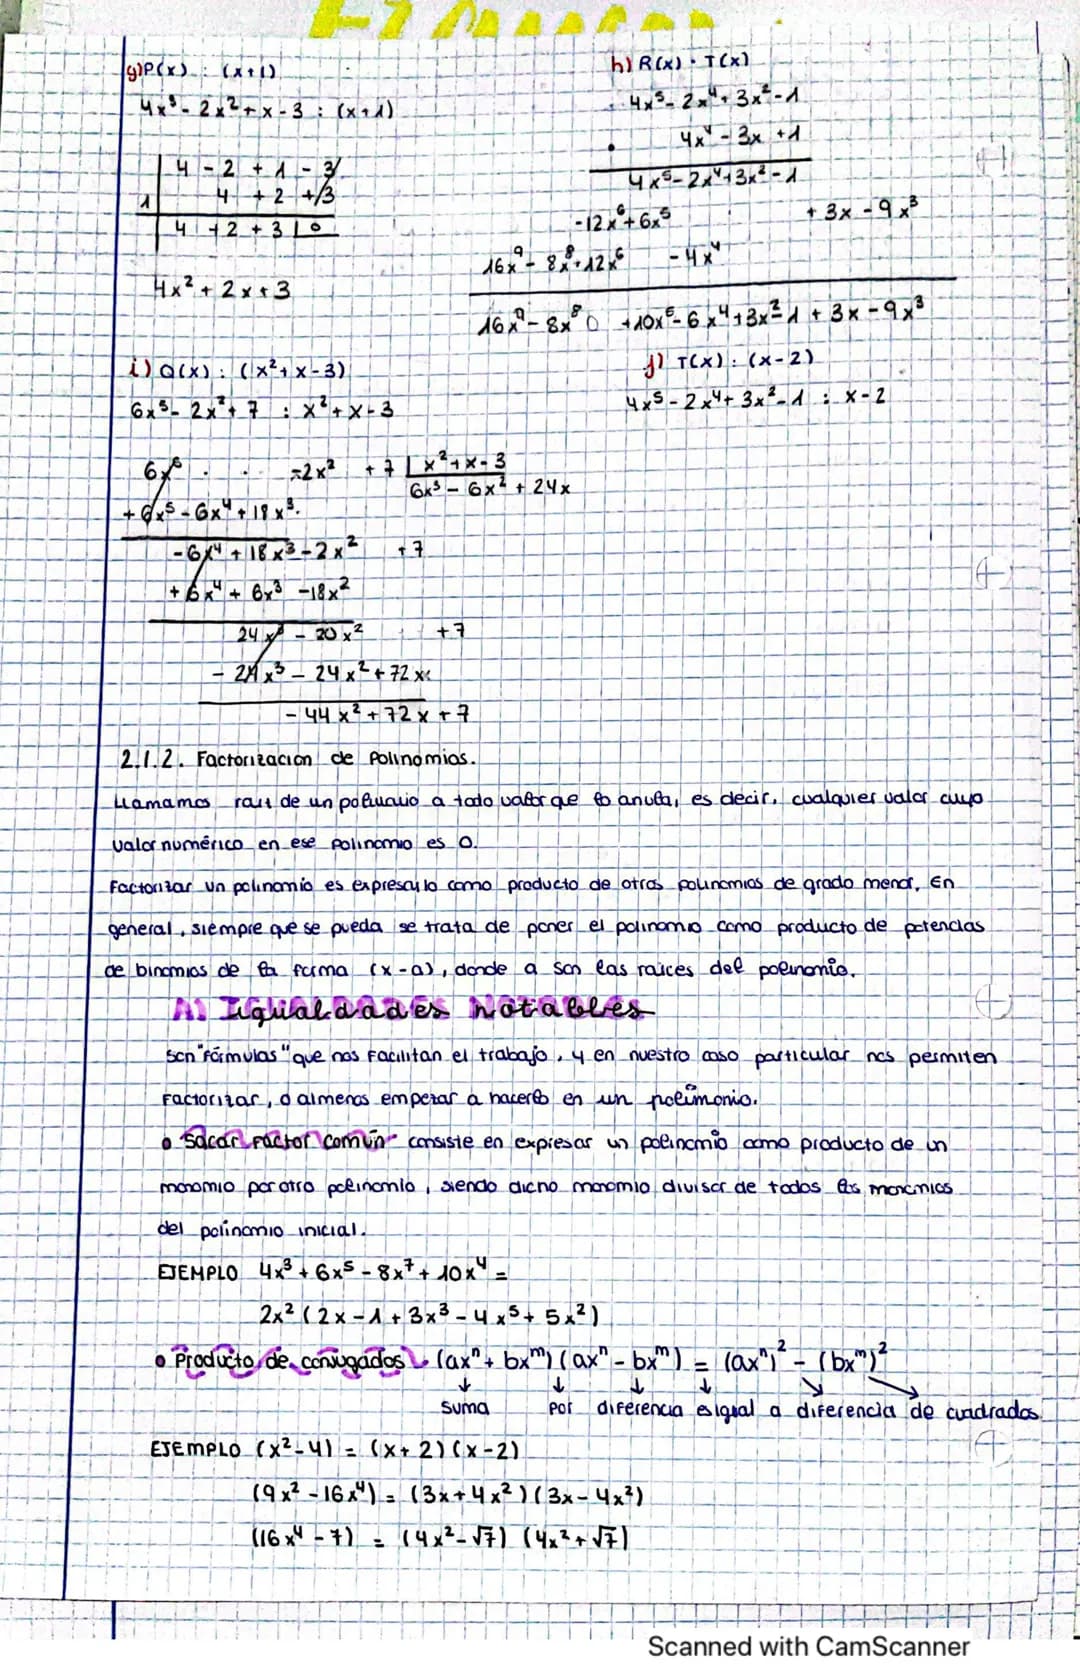 g) P(x) : (x+1)
4x³ - 2x² + x - 3 : (x+1)
4 - 2 + 1 - 3
1 4 + 2 + 3
4 + 2 + 3 | 0
4x² + 2x + 3
h) R(x) · T(x)
4x⁵ - 2x⁴ + 3x² - 1
· 4x⁴ - 3x + 1
4x⁵ - 2x⁴ + 3x² - 1
-12x⁶ + 6x⁵ + 3x - 9x³
16x⁹ - 8x⁸ + 12x⁶ - 4x⁴
16x⁹ - 8x⁸ 0 + 10x⁵ - 6x⁴ + 3x² - 1 + 3x - 9x³
i) Q(x) : (x² + x - 3)
6x⁵ - 2x² + 7 : x² + x - 3
6x⁵ - 2x² + 7 | x² + x - 3
+ 6x⁵ - 6x⁴ + 18x³ 6x³ - 6x² + 24x
-6x⁴ + 18x³ - 2x² + 7
+ 6x⁴ + 6x³ - 18x²
24x³ - 20x² + 7
- 24x³ - 24x² + 72x
- 44x² + 72x + 7
j) T(x) : (x-2)
4x⁵ - 2x⁴ + 3x² - 1 : x - 2
2.1.2. Factorización de Polinomios.
Llamamos raíz de un polinomio a todo valor que lo anula, es decir, cualquier valor cuyo
valor numérico en ese polinomio es 0.
Factorizar un polinomio es expresarlo como producto de otros polinomios de grado menor. En
general, siempre que se pueda se trata de poner el polinomio como producto de potencias
de binomios de la forma (x-a), donde a son las raíces del polinomio.
A) Igualdades notables
Son "Fórmulas" que nos facilitan el trabajo, y en nuestro caso particular nos permiten
Factorizar, o almenos empezar a hacerlo en un polinomio.
• Sacar Factor común consiste en expresar un polinomio como producto de un
monomio por otro polinomio, siendo dicho monomio divisor de todos los monomios
del polinomio inicial.
EJEMPLO 4x³ + 6x⁵ - 8x⁷ + 10x⁴ =
2x² (2x - 1 + 3x³ - 4x⁵ + 5x²)
• Producto de conjugados (axⁿ + bxᵐ) (axⁿ - bxᵐ) = (axⁿ)² - (bxᵐ)²
↓ ↓ ↓ ↓ ↘ ↘
suma por diferencia es igual a diferencia de cuadrados
EJEMPLO (x² - 4) = (x + 2) (x - 2)
(9x² - 16x⁴) = (3x + 4x²) (3x - 4x²)
(16x⁴ - 7) = (4x² - √7) (4x² + √7)
Scanned with CamScanner